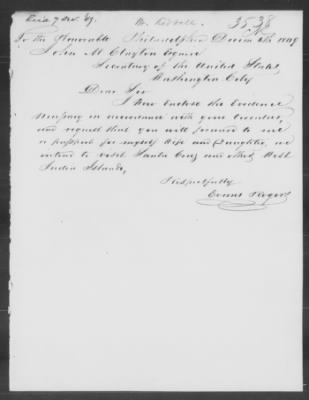 Recd 7 Dec. 49.
3538
To the Honorable Philadelphia Decem 6th 1849
John M Clayton Esquire
Secretary of the United States,
Washington City
Dear Sir
I here enclose the Evidence
necessary in accordance with your Circular,
and request that you will forward to me
a passport for myself Wife and Daughter, we
intend to visit Santa Cruz and other West
India Islands,
Respectfully
Evans Rogers